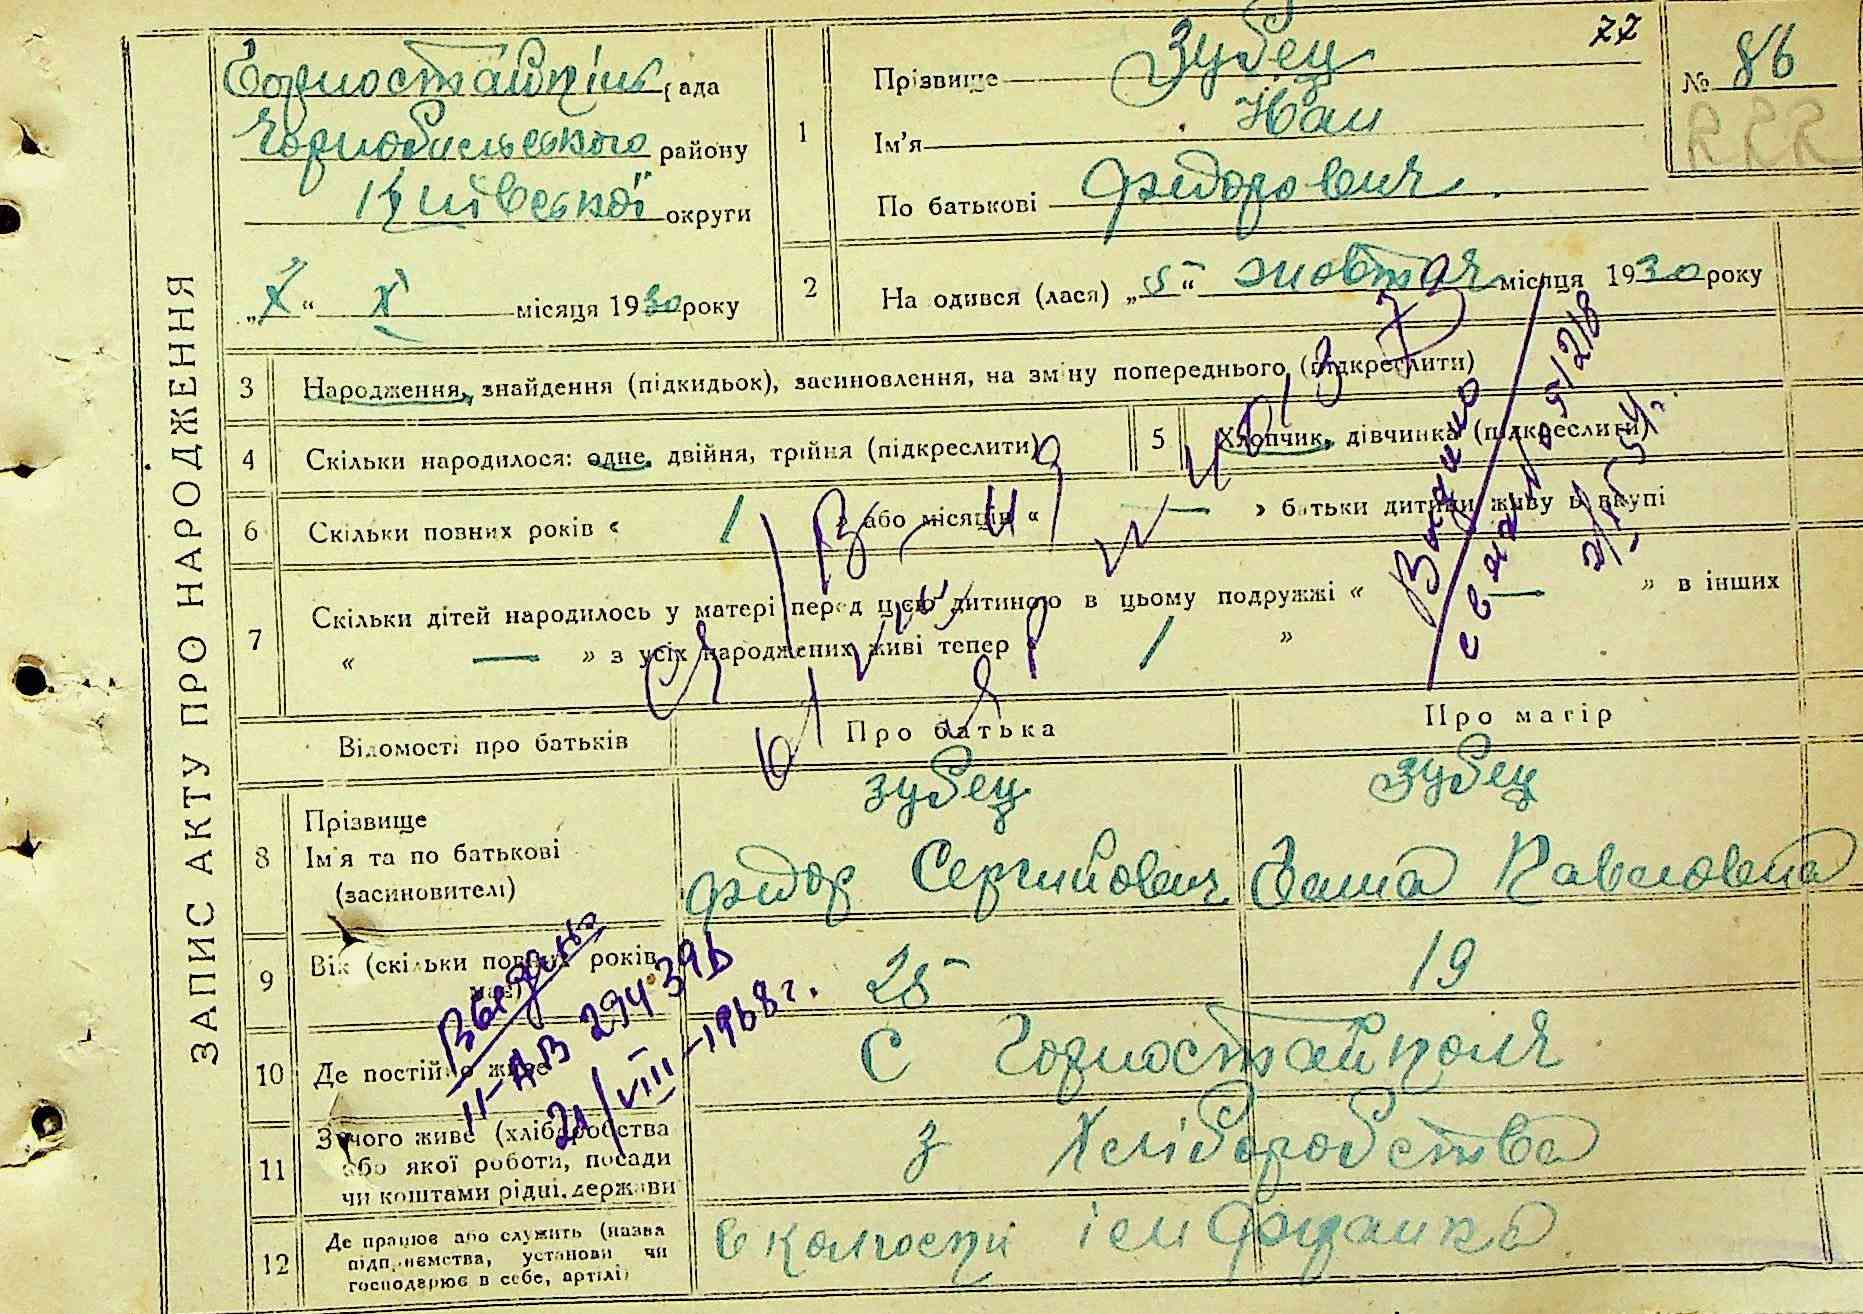 77
ЗАПИС АКТУ ПРО НАРОДЖЕННЯ
Горностайпіль рада
Чорнобильського району
Київської округи
„X“ XI місяця 1930 року
1
Прізвище Зубец
Ім'я Іван
По батькові Фтдорович
№ 86
2
На одився (лася) „5“ жовтня місяця 1930 року
3 Народження, знайдення (підкидьок), засиновлення, на зміну попереднього (підкреслити)
4 Скільки народилося: одне, двійня, трійня (підкреслити)
5 Хлопчик, дівчинка (підкреслити)
6 Скільки повних років « 1 » або місяців « — » батьки дитини живу ь вкупі
7 Скільки дітей народилось у матері перед цією дитиною в цьому подружжі « — » в інших
« — » з усіх народжених живі тепер « 1 »
Видано
2/IV 51 г.
Відомості про батьків
Про батька
Про матір
8
Прізвище
Ім'я та по батькові
(засиновителі)
Зубец
Фтдор Сергийович
Зубец
Ганна Павловна
9 Вік (скільки повних років має)
25
19
Выдано
II-АВ 294396
21/VIII-1968 г.
10 Де постійно живе
С Горностайполя
11 З чого живе (хліборобства
або якої роботи, посади
чи коштами рідні, держави
з Хліборобства
12 Де працює або служить (назва
підприємства, установи чи
господарює в себе, артілі)
в колгоспі ім Франка